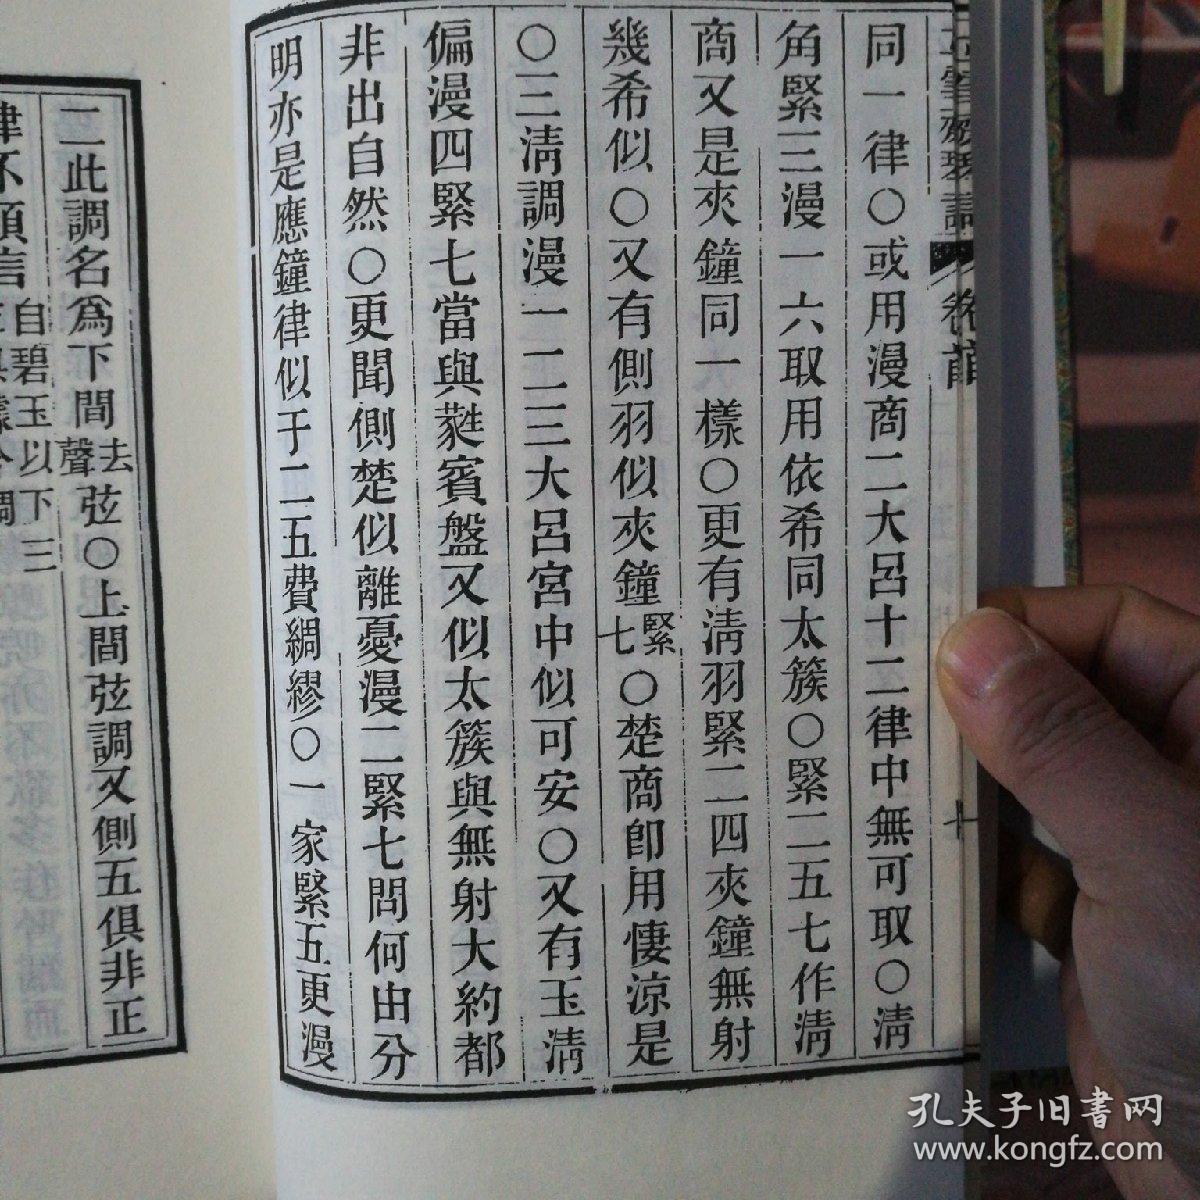 卷首
十
同一律○或用漫商二大呂十二律中無可取○清
角緊三漫一六取用依希同太簇○緊二五七作清
商又是夾鐘同一樣○更有清羽緊二四夾鐘無射
幾希似○又有側羽似夾鐘緊七○楚商卽用悽涼是
○三清調漫一二三大呂宮中似可安○又有玉清
偏漫四緊七當與蕤賓盤又似太簇與無射大約都
非出自然○更聞側楚似離憂漫二緊七問何由分
明亦是應鐘律似于二五費綢繆○一家緊五更漫
二此調名爲下間去聲弦○上間弦調又側五俱非正
自碧玉以下三
孔夫子旧书网
www.kongfz.com